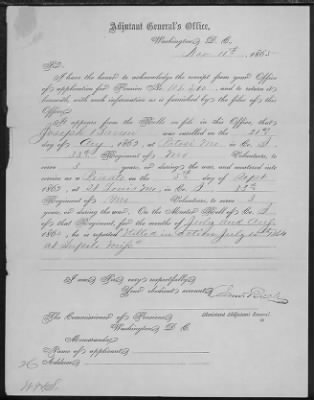 Adjutant General's Office,
Washington, D. C.,
Nov 11th, 1865
I have the honor to acknowledge the receipt from your Office
of application for Pension No. and to return it
herewith, with such information as is furnished by the files of this
Office.
It appears from the Rolls on file in this Office, that
Joseph was enrolled on the
day of Aug, 1862, at Mo., in Co. I,
33rd Regiment of Mo Volunteers, to
serve 3 years, or during the war, and mustered into
service as a Private on the 5th day of Sept
1862, at St Louis Mo, in Co. I 33rd
Regiment of Mo Volunteers, to serve 3
years, or during the war. On the Muster Roll of Co. I
of that Regiment, for the months of July and Aug,
1864, he is reported "Killed in action July 64
at Miss"
I am, Sir, very respectfully,
Your obedient servant,
(Assistant Adjutant General)
The Commissioner of Pensions
Washington, D. C.
Memoranda:
Name of applicant
Address